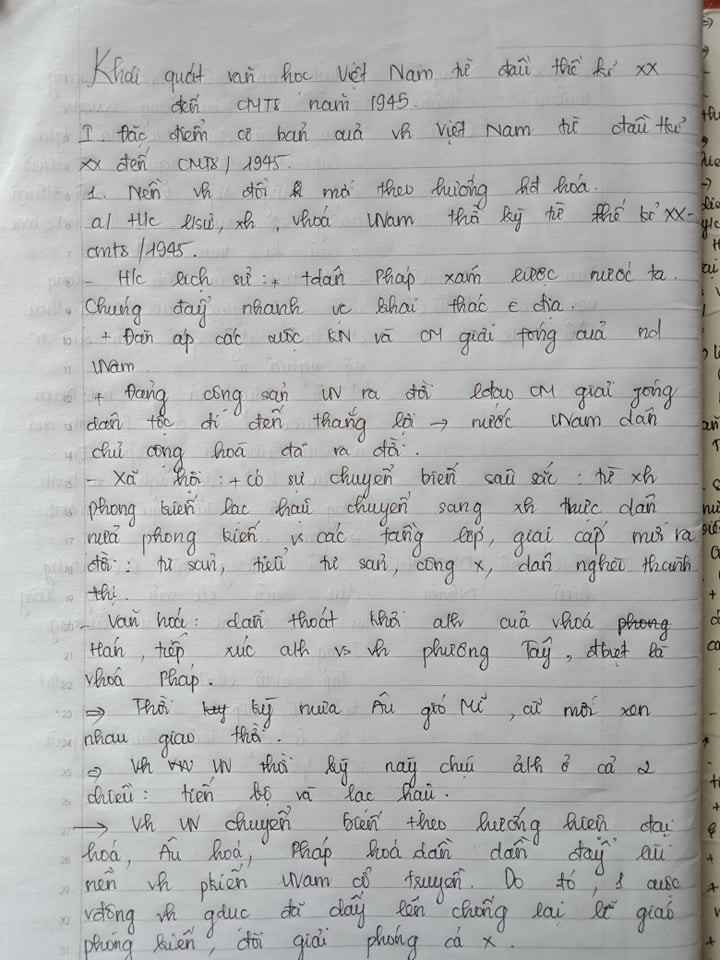 Khái quát văn học Việt Nam từ đầu thế kỉ XX
đến CMT8 năm 1945.
I. Đặc điểm cơ bản của vh Việt Nam từ đầu thế
XX đến CMT8/1945.
1. Nền vh đổi mới theo hướng hđ hoá.
a/ H/c l/sử, xh, vhoá VNam thời kỳ từ thế kỉ XX-
cmt8/1945.
- H/c lịch sử: + tdân Pháp xâm lược nước ta.
Chúng đẩy nhanh vc khai thác € địa.
+ Đàn áp các cuộc KN và CM giải fóng của nd
VNam
+ Đảng cộng sản VN ra đời lđạo CM giải fóng
dân tộc đi đến thắng lợi → nước VNam dân
chủ cộng hoá đã ra đời.
- Xã hội: + có sự chuyển biến sâu sắc: từ xh
phong kiến lạc hậu chuyển sang xh thực dân
nửa phong kiến vs các tầng lớp, giai cấp mới ra
đời: tư sản, tiểu tư sản, công x, dân nghèo thành
thị.
- Văn hoá: dần thoát khỏi ảh của vhoá phong
Hán, tiếp xúc ảh vs vh phương Tây, đbiệt là
vhoá Pháp.
⇒ Thời kỳ mưa Âu gió Mĩ, cũ mới xen
nhau giao thời.
⇒ Vh VN thời kỳ này chịu ảh ở cả 2
chiều: tiến bộ và lạc hậu.
→ Vh VN chuyển biến theo hướng hiện đại
hoá, Âu hoá, Pháp hoá dần dần đẩy lùi
nền vh pkiến VNam cổ truyền. Do đó, 1 cuộc
vđộng vh gdục đã dấy lên chống lại lễ giáo
phong kiến, đòi giải phóng cá x.